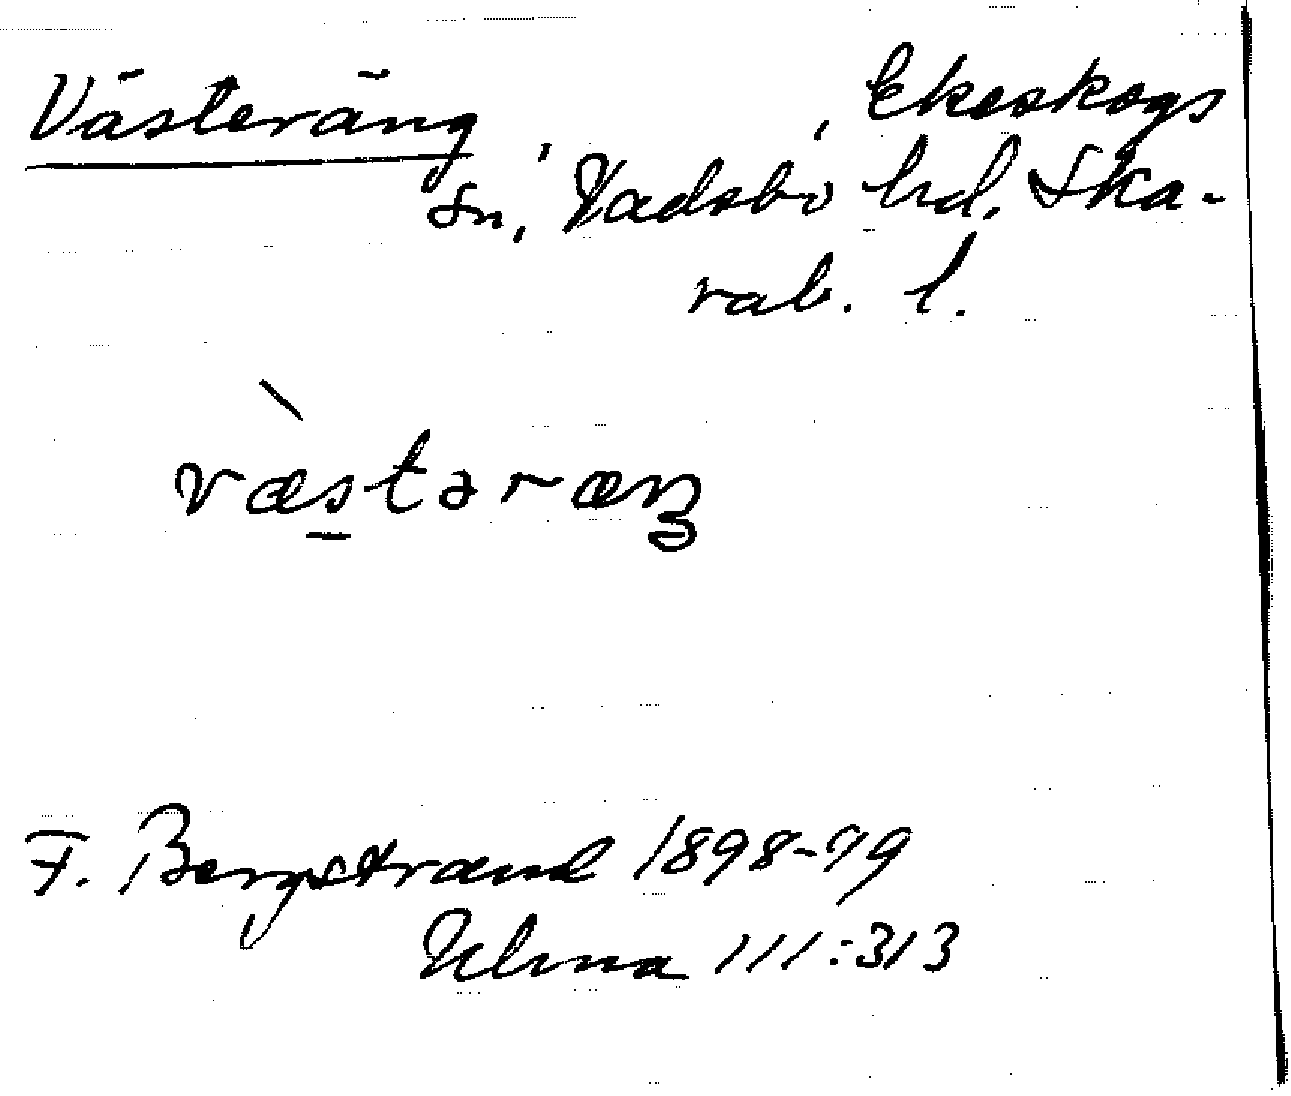 Västeräng, Ekeskogs
Sn, Vadsbo hd, Ska-
rab. l.
væ̀stəræŋ
F. Bergstrand 1898-99
Ulma 111:313